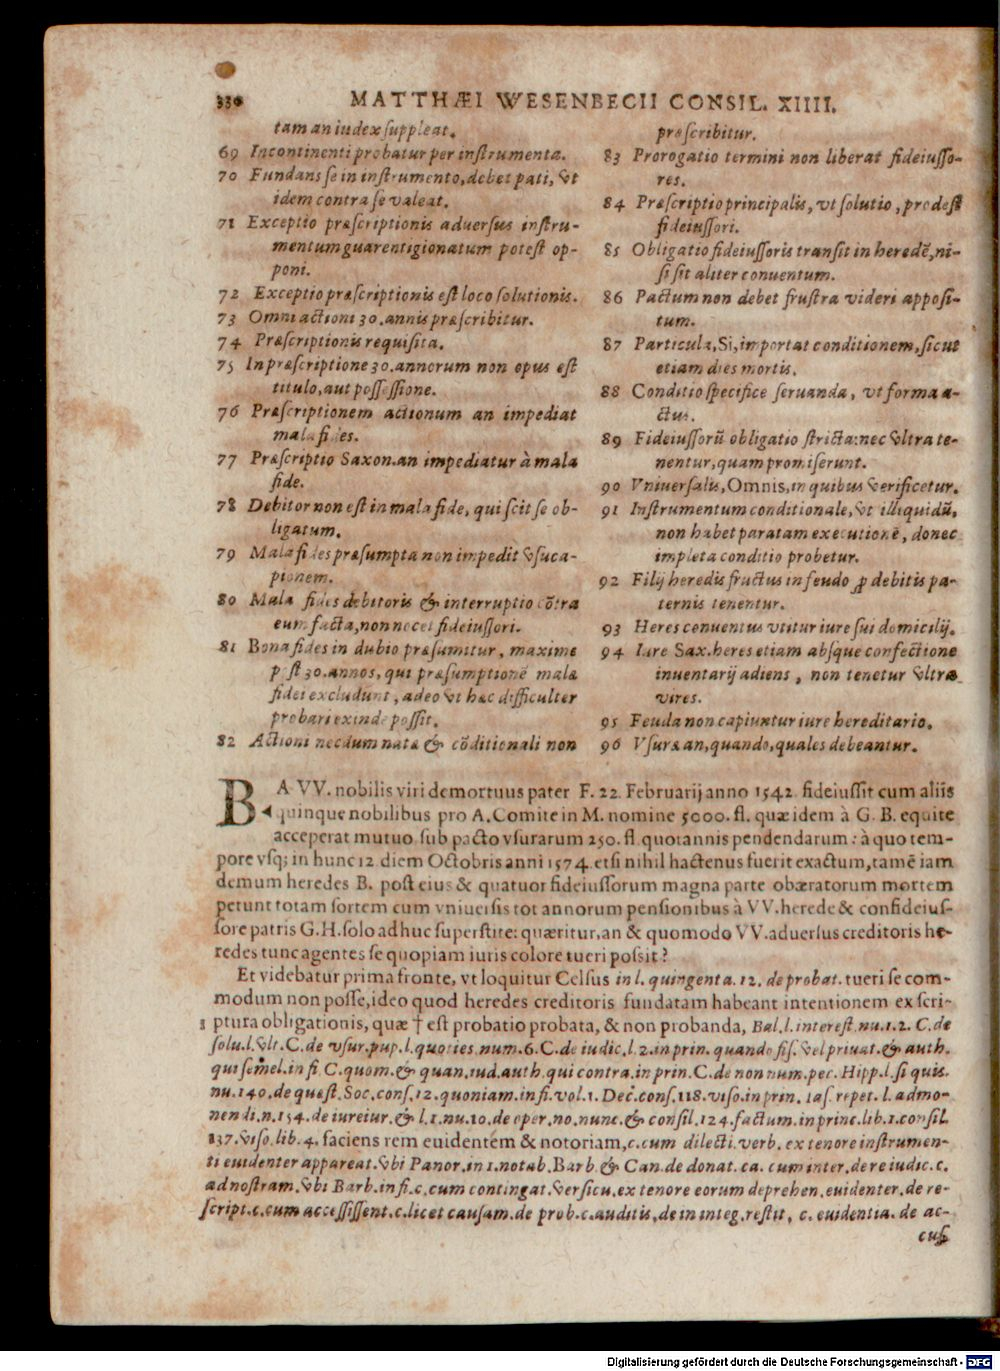 330 MATTHÆI WESENBECII CONSIL. XIIII.
tam an iudex suppleat.
69 Incontinenti probatur per instrumenta.
70 Fundans se in instrumento, debet pati, vt
idem contra se valeat.
71 Exceptio præscriptionis aduersus instru-
mentum guarentigionatum potest op-
poni.
72 Exceptio præscriptionis est loco solutionis.
73 Omni actioni 30. annis præscribitur.
74 Præscriptionis requisita.
75 In præscriptione 30. annorum non opus est
titulo, aut possessione.
76 Præscriptionem actionum an impediat
mala fides.
77 Præscriptio Saxon. an impediatur à mala
fide.
78 Debitor non est in mala fide, qui scit se ob-
ligatum.
79 Mala fides præsumpta non impedit vsuca-
pionem.
80 Mala fides debitoris & interruptio cõtra
eum facta, non nocet fideiussori.
81 Bona fides in dubio præsumitur, maxime
post 30. annos, qui præsumptionẽ mala
fidei excludunt, adeo vt hæc difficulter
probari exinde possit.
82 Actioni necdum nata & cõditionali non
præscribitur.
83 Prorogatio termini non liberat fideiusso-
res.
84 Præscriptio principalis, vt solutio, prodest
fideiussori.
85 Obligatio fideiussoris transit in heredẽ, ni-
si sit aliter conuentum.
86 Pactum non debet frustra videri apposi-
tum.
87 Particula, Si, importat conditionem, sicut
etiam dies mortis.
88 Conditio specifice seruanda, vt forma a-
ctus.
89 Fideiussorũ obligatio stricta: nec vltra te-
nentur, quam promiserunt.
90 Vniuersalis, Omnis, in quibus verificetur.
91 Instrumentum conditionale, vt illiquidũ,
non habet paratam executionẽ, donec
impleta conditio probetur.
92 Filij heredis fructus in feudo ꝓ debitis pa-
ternis tenentur.
93 Heres conuentus vtitur iure sui domicilij.
94 Iure Sax. heres etiam absque confectione
inuentarij adiens, non tenetur vltra
vires.
95 Feuda non capiuntur iure hereditario.
96 Vsuræ an, quando, quales debeantur.
BA VV. nobilis viri demortuus pater F. 22. Februarij anno 1542. fideiussit cum aliis
quinque nobilibus pro A. Comite in M. nomine 5000. fl. quæ idem à G. B. equite
acceperat mutuo sub pacto vsurarum 250. fl. quotannis pendendarum: à quo tem-
pore vsq; in hunc 12. diem Octobris anni 1574. etsi nihil hactenus fuerit exactum, tamẽ iam
demum heredes B. post eius & quatuor fideiussorum magna parte obæratorum mortem
petunt totam sortem cum vniuersis tot annorum pensionibus à VV. herede & confideius-
sore patris G. H. solo adhuc superstite: quæritur, an & quomodo VV. aduersus creditoris he-
redes tunc agentes se quopiam iuris colore tueri possit?
Et videbatur prima fronte, vt loquitur Celsus in l. quingenta. 12. de probat. tueri se com-
modum non posse, ideo quod heredes creditoris fundatam habeant intentionem ex scri-
1 ptura obligationis, quæ † est probatio probata, & non probanda, Bal. l. interest. nu. 1. 2. C. de
solu. l. vlt. C. de vsur. pup. l. quoties num. 6. C. de iudic. l. 2. in prin. quando fis. vel priuat. & auth.
qui semel. in fi C. quom. & quan. iud. auth. qui contra. in prin. C. de non num. pec. Hipp. l. si quis.
nu. 140. de quæst. Soc. cons. 12. quoniam. in fi. vol. 1. Dec. cons. 118. viso. in prin. Ias. repet. l. admo-
nendi. n. 154. de iureiur. & l. 1. nu. 10. de oper. no. nunc. & consil. 124. factum. in princ. lib. 1. consil.
137. viso. lib. 4. faciens rem euidentem & notoriam, c. cum dilecti. verb. ex tenore instrumen-
ti euidenter appareat. vbi Panor. in 1. notab. Barb. & Can. de donat. ca. cum inter. de re iudic. c.
ad nostram. vbi Barb. in fi. c. cum contingat. versicu. ex tenore eorum deprehen. euidenter. de re-
script. c. cum accessissent. c. licet causam. de prob. c. auditis. de in integ. restit, c. euidentia. de ac-
cus.
Digitalisierung gefördert durch die Deutsche Forschungsgemeinschaft - DFG